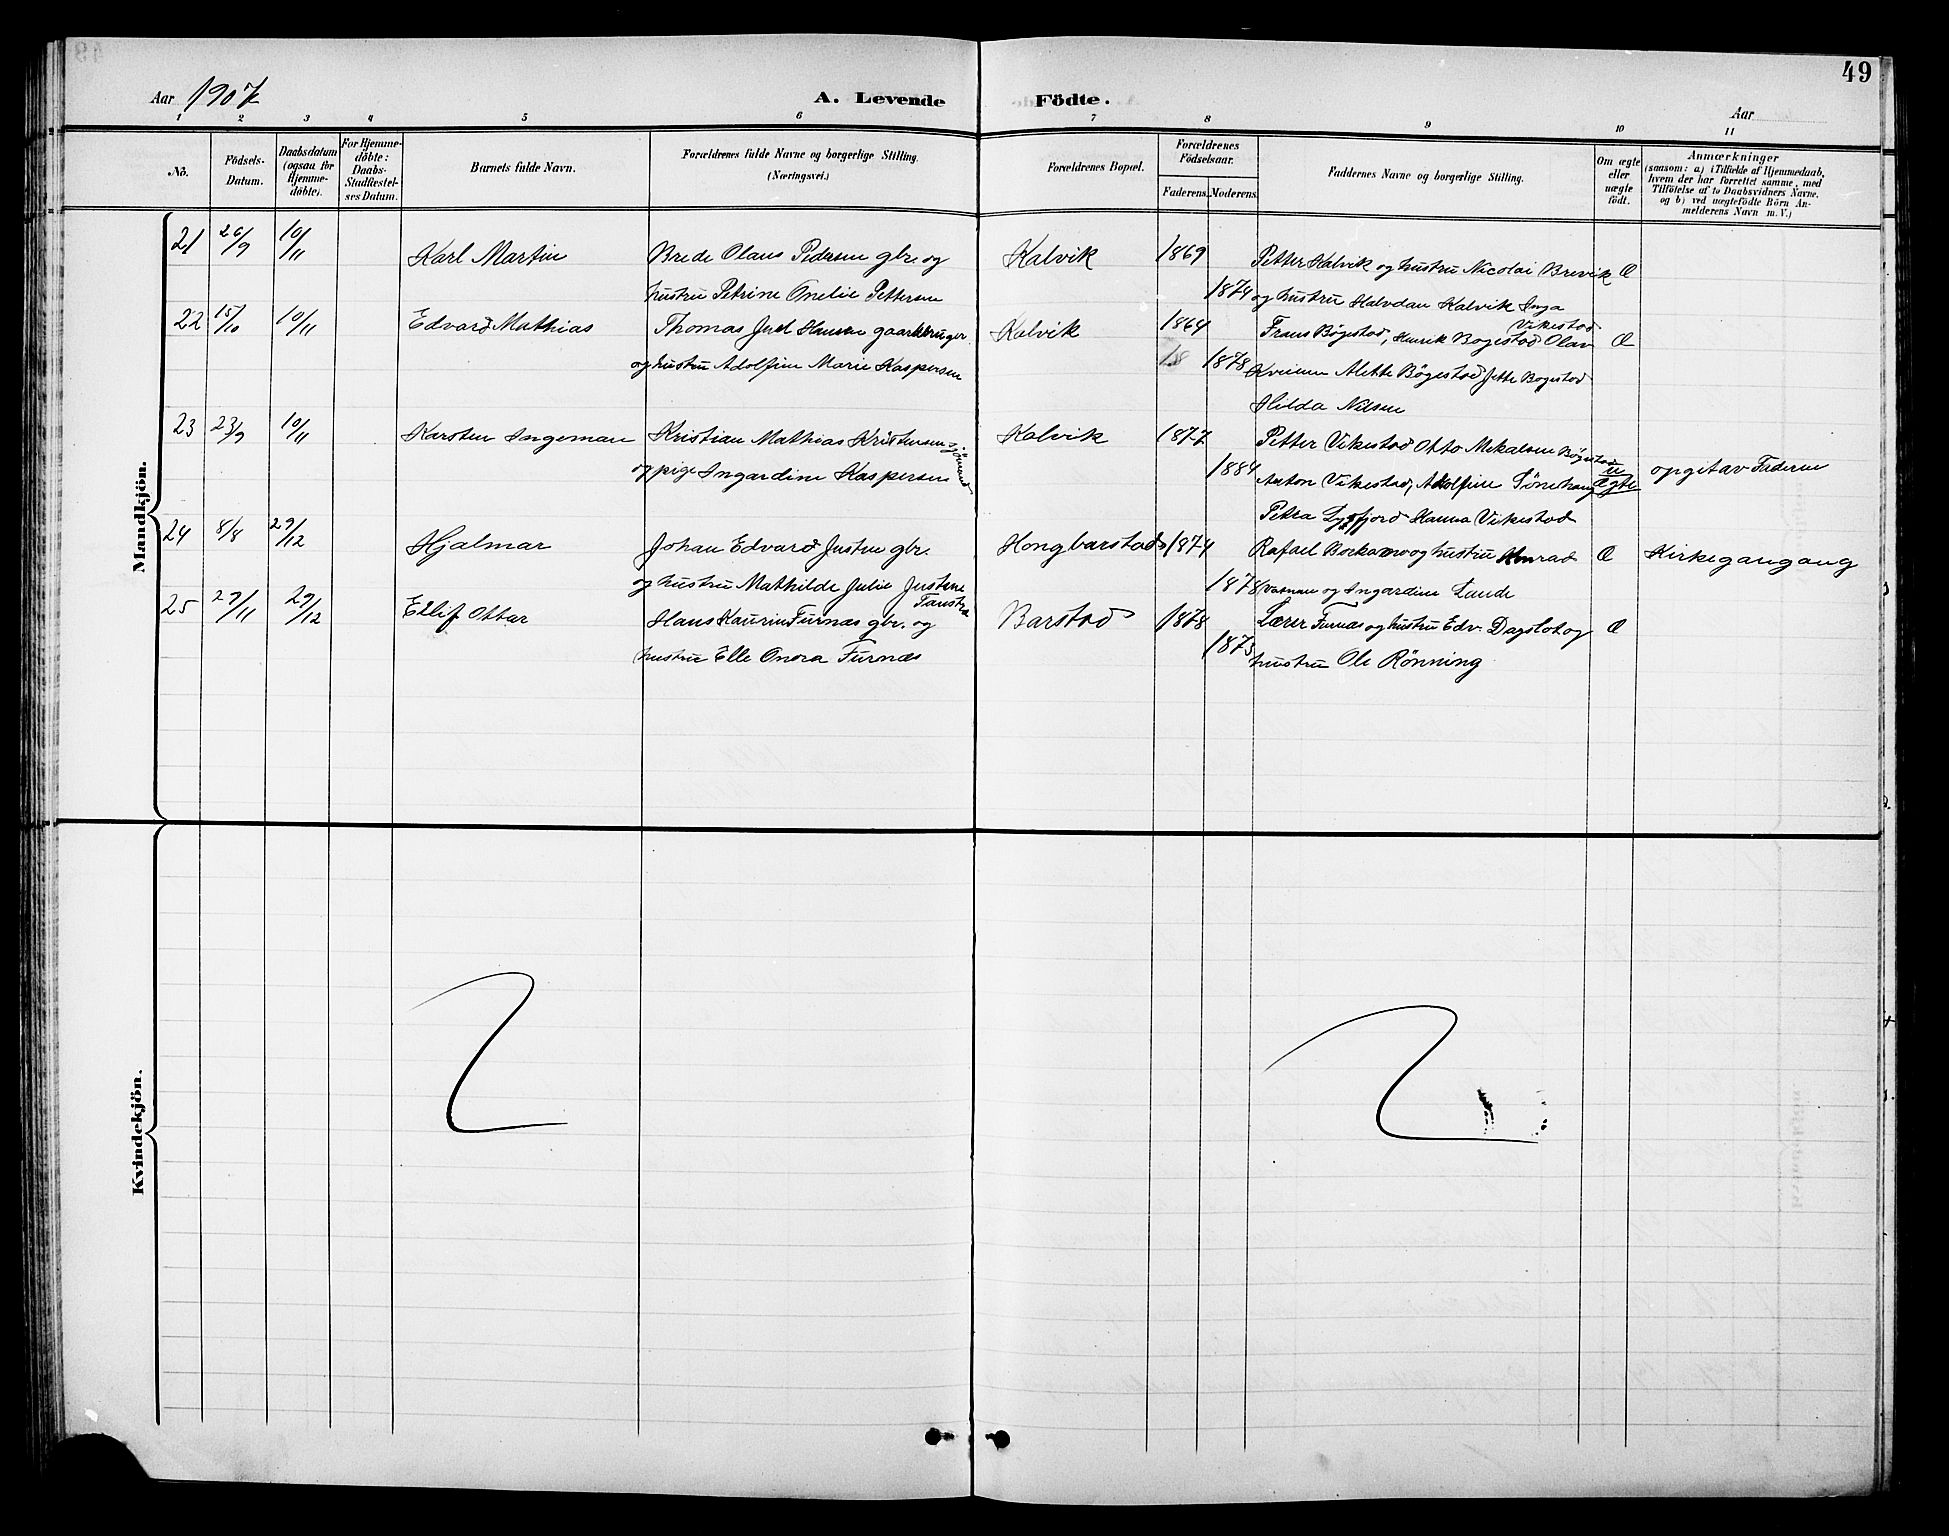 49
Aar 1907
A. Levende Födte.
Aar
1 2 3 4 5 6 7 8 9 10 11
No.
Födsels-Datum.
Daabsdatum (ogsaa for Hjemme-döbte).
For Hjemme-döbte: Daabs-Stadfæstel-ses Datum.
Barnets fulde Navn.
Forældrenes fulde Navne og borgerlige Stilling.
(Næringsvei.)
Forældrenes Bopæl.
Forældrenes Födselsaar.
Faderens. Moderens.
Faddernes Navne og borgerlige Stilling.
Om ægte eller uægte födt.
Anmærkninger
(saasom: a) i Tilfælde af Hjemmedaab,
hvem der har forrettet samme, med
Tilföielse af to Daabsvidners Navne,
og b) ved uægtefödte Börn An-
melderens Navn m. V.)
Mandkjön.
21 26/9 10/11 Karl Martin Brede Olaus Pedersen gbr. og Kalvik 1869 Petter Kalvik og hustru Nicolai Brevik Æ
hustru Petrine Onelie Pettersen 1874 og hustru Halvdan Kalvik Inga
Vikestad
22 15/10 10/11 Edvard Mathias Thomas Juel Hansen gaardbruger Kalvik 1864 Frans Bøgestad, Henrik Bogestad Olav Æ
og hustru Adolfine Marie Kaspersen 18 1878 Alette Bøgestad Jette Bogestad
Hilda Nilsen
23 23/9 10/11 Karsten Ingeman Kristian Mathias Kristensen sjömand Kalvik 1877 Petter Vikestad Otto Mikalsen Bøgestad
og pige Ingardine Kaspersen 1884 Anton Vikestad, Adolfine u Ægte opgit av Faderen
Petra Hanna Vikestad
24 8/8 29/12 Hjalmar Johan Edvard Justen gbr. Hongbarstad 1874 Rafael og hustru Æ Kirkegangang
og hustru Mathilde Julie Justene 1878 og Ingardine Lande
25 27/11 29/12 Ellif Ottar Hans Kaurin Furnæs gbr. og Barstad 1878 Lærer Furnæs og hustru Edv. Dagslot og Æ
hustru Elle Onora Furnæs 1873 hustru Ole Rönning
Kvindekjön.